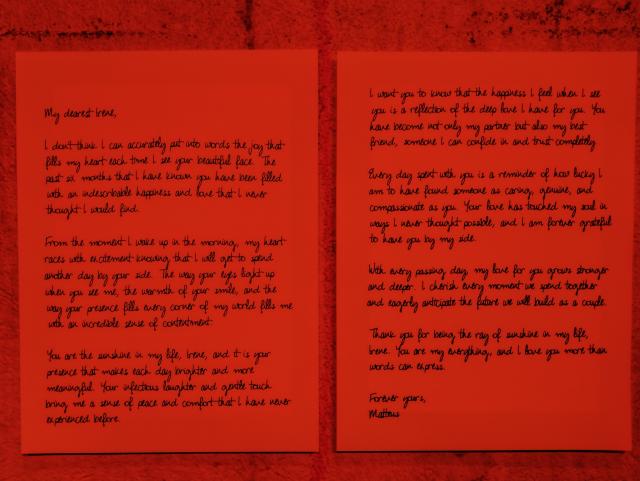 My dearest Irene,
I don't think I can accurately put into words the joy that
fills my heart each time I see your beautiful face. The
past six months that I have known you have been filled
with an indescribable happiness and love that I never
thought I would find.
From the moment I wake up in the morning, my heart
races with excitement knowing that I will get to spend
another day by your side. The way your eyes light up
when you see me, the warmth of your smile, and the
way your presence fills every corner of my world fills me
with an incredible sense of contentment.
You are the sunshine in my life, Irene, and it is your
presence that makes each day brighter and more
meaningful. Your infectious laughter and gentle touch
bring me a sense of peace and comfort that I have never
experienced before.
I want you to know that the happiness I feel when I see
you is a reflection of the deep love I have for you. You
have become not only my partner but also my best
friend, someone I can confide in and trust completely.
Every day spent with you is a reminder of how lucky I
am to have found someone as caring, genuine, and
compassionate as you. Your love has touched my soul in
ways I never thought possible, and I am forever grateful
to have you by my side.
With every passing day, my love for you grows stronger
and deeper. I cherish every moment we spend together
and eagerly anticipate the future we will build as a couple.
Thank you for being the ray of sunshine in my life,
Irene. You are my everything, and I love you more than
words can express.
Forever yours,
Matteus